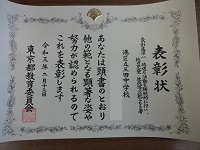 表彰状
港区立三田中学校
あなたは頭書のとおり
他の範となる顕著な姿や
努力が認められるので
これを表彰します
令和三年二月十三日
東京都教育委員会